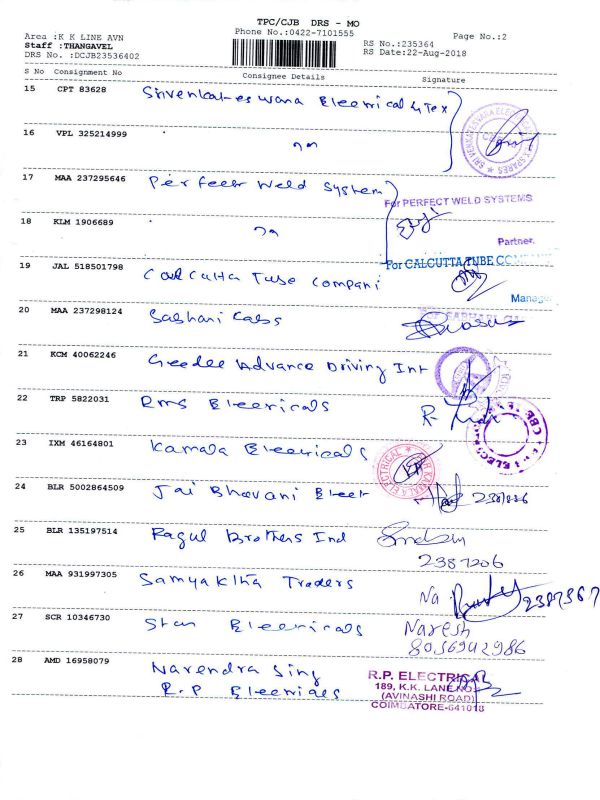 TPC/CJB DRS - MO
Area :K K LINE AVN
Phone No.:0422-7101555
Page No.:2
Staff :THANGAVEL
RS No.:235364
DRS No. :DCJB23536402
RS Date:22-Aug-2018
S No Consignment No Consignee Details Signature
15 CPT 83628 Srivenkateswara Electrical & Tex
16 VPL 325214999 "
17 MAA 237295646 Perfect Weld System
For PERFECT WELD SYSTEMS
18 KLM 1906689 "
Partner.
For CALCUTTA TUBE
19 JAL 518501798 Calcutta Tube Compani
Manager
20 MAA 237298124 Sabhari Cabs
21 KCM 40062246 Geedee Advance Driving Int
22 TRP 5822031 Rms Electricals
23 IXM 46164801 Kamala Electricals
24 BLR 5002864509 Jai Bhavani Elect
25 BLR 135197514 Ragul Brothers Ind
2387206
26 MAA 931997305 Samyaktha Traders Na 2387367
27 SCR 10346730 Star Electricals Naresh
8056942986
28 AMD 16958079 Narendra Sing
R.P Electricals
R.P. ELECTRICAL
189, K.K. LANE NO.
(AVINASHI ROAD)
COIMBATORE-641018